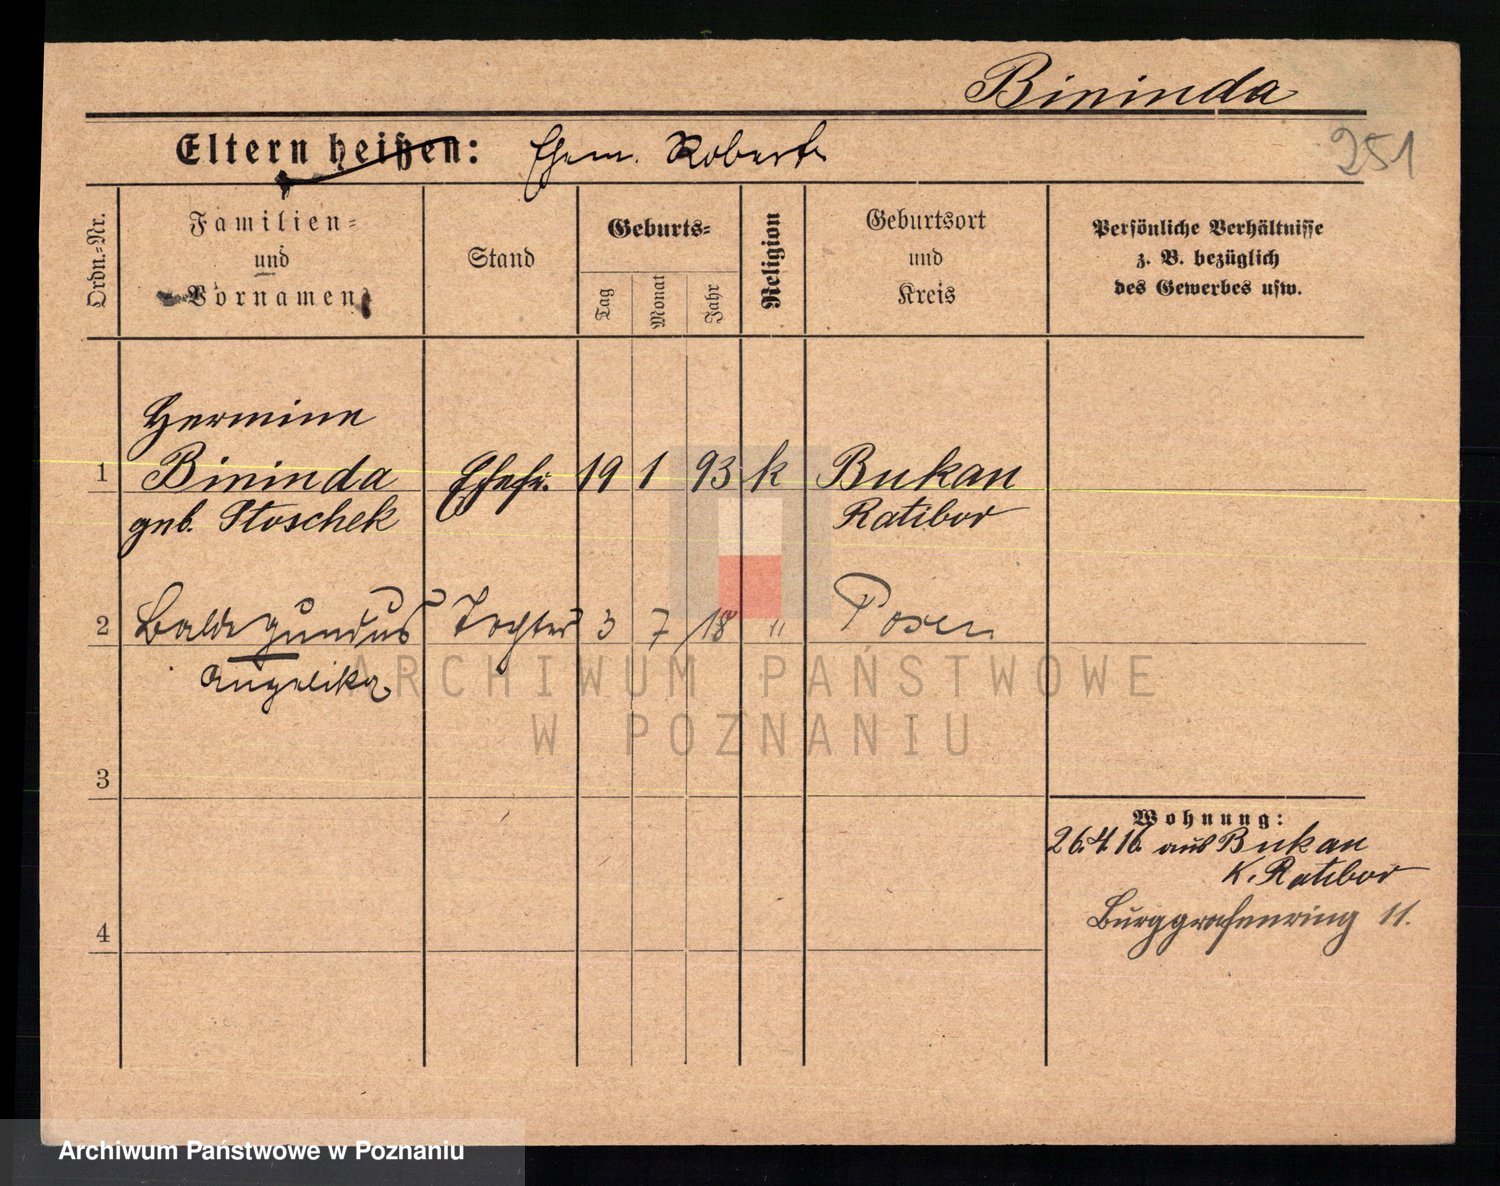 Bininda
251
Eltern heißen: Ehem. Robert
Ordn.-Nr.
Familien-
und
Vornamen
Stand
Geburts-
Tag
Monat
Jahr
Religion
Geburtsort
und
Kreis
Persönliche Verhältnisse
z. B. bezüglich
des Gewerbes usw.
Hermine
1 Bininda Ehefr. 19 1 93 k Bukau
geb. Stoschek Ratibor
2 Tochter 3 7 18 " Posen
Angelika
ARCHIWUM PAŃSTWOWE
W POZNANIU
3
Wohnung:
26.4.16. aus Bukau
K. Ratibor
Burggrafenring 11.
4
Archiwum Państwowe w Poznaniu